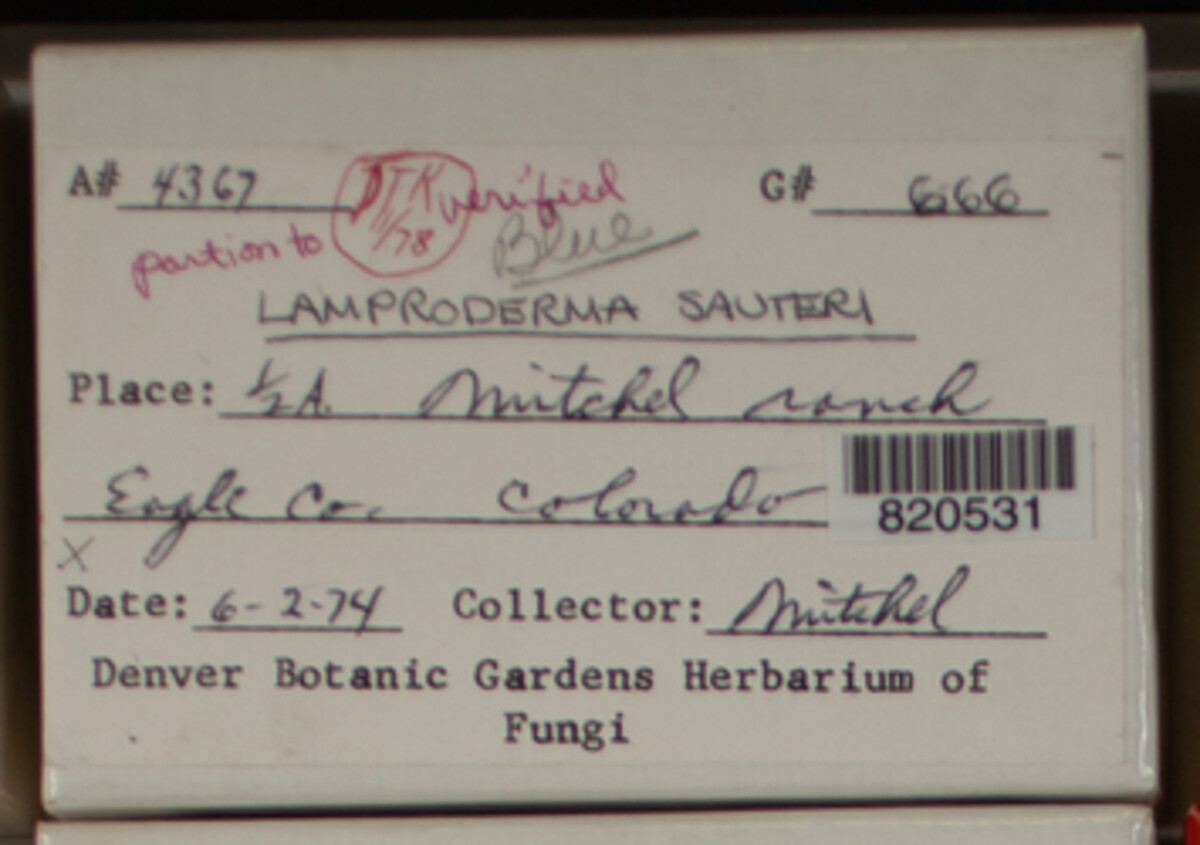 A# 4367 DTK verified G# 666
portion to 11/78 Blue
LAMPRODERMA SAUTERI
Place: ½A. Mitchel ranch
Eagle Co. Colorado
820531
X
Date: 6-2-74 Collector: Mitchel
Denver Botanic Gardens Herbarium of
Fungi